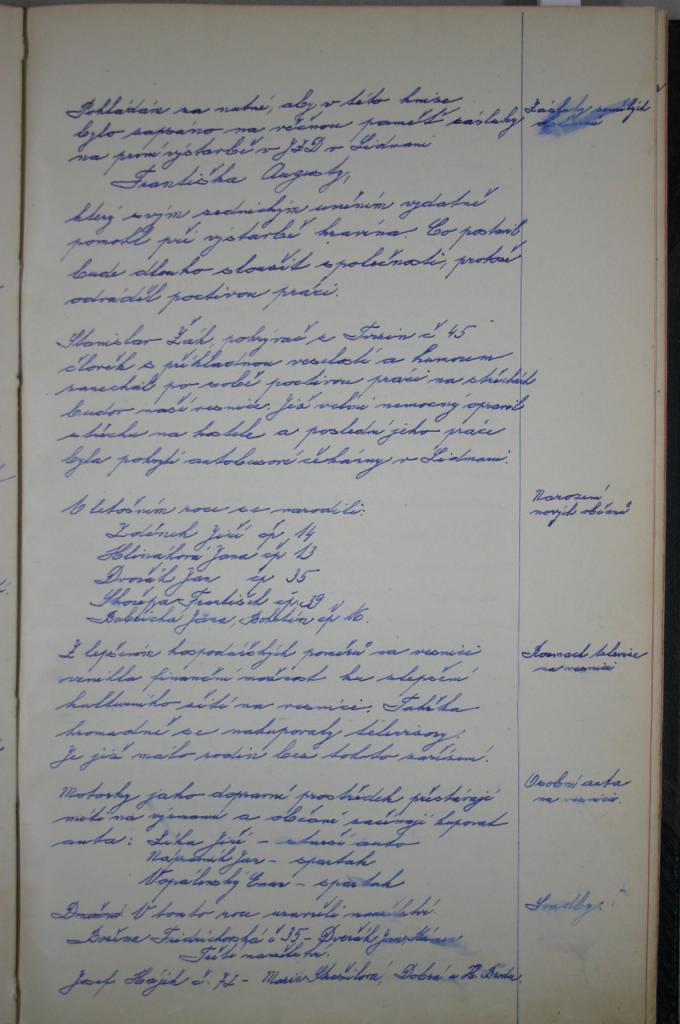 Pokládám za nutné, aby v této knize
bylo zapsáno na věčnou paměť zásluhy
na první výstavbě v JZD v Lidmani
Františka Augusty,
který svým zednickým uměním vydatně
pomohl při výstavbě kravína. Co postavil
bude dlouho sloužit společnosti, protože
odváděl poctivou práci.
Zásluhy zemřelých
Stanislav Žák, pokrývač z č 45
člověk s příkladnou veselostí a humorem
zanechal po sobě poctivou práci na střechách
budov naší vesnice. Již velmi nemocný opravil
střechu na hotele a poslední jeho práce
byla pokrytí autobusové čekárny v Lidmani.
V letošním roce se narodili:
Zdeněk Jiří čp. 14
Hlináková Jana čp 13
Dvořák Jan čp 35
Skořepa František čp. 39
Jana, čp 16.
Narození
nových občanů
Z lepšením hospodářských poměrů na vesnici
vznikla finanční možnost ku zlepšení
kulturního žití na vesnici. Takřka
hromadně se nakupovaly televisory.
Je již málo rodin bez tohoto zařízení.
televize
na vesnici
Motorky jako dopravní prostředek přestávají
míti na významu a občané začínají kupovat
auta: Líka Jiří – starší auto
Nápravník Jar – spartak
Vopálenský – spartak
Osobní auta
na vesnici.
V tomto roce uzavřeli
Božena Fridrichovská č 35 – Dvořák Jan,
Této
Josef Hájek č. 71 – Marie Dobrá u H. Brodu
Svatby: